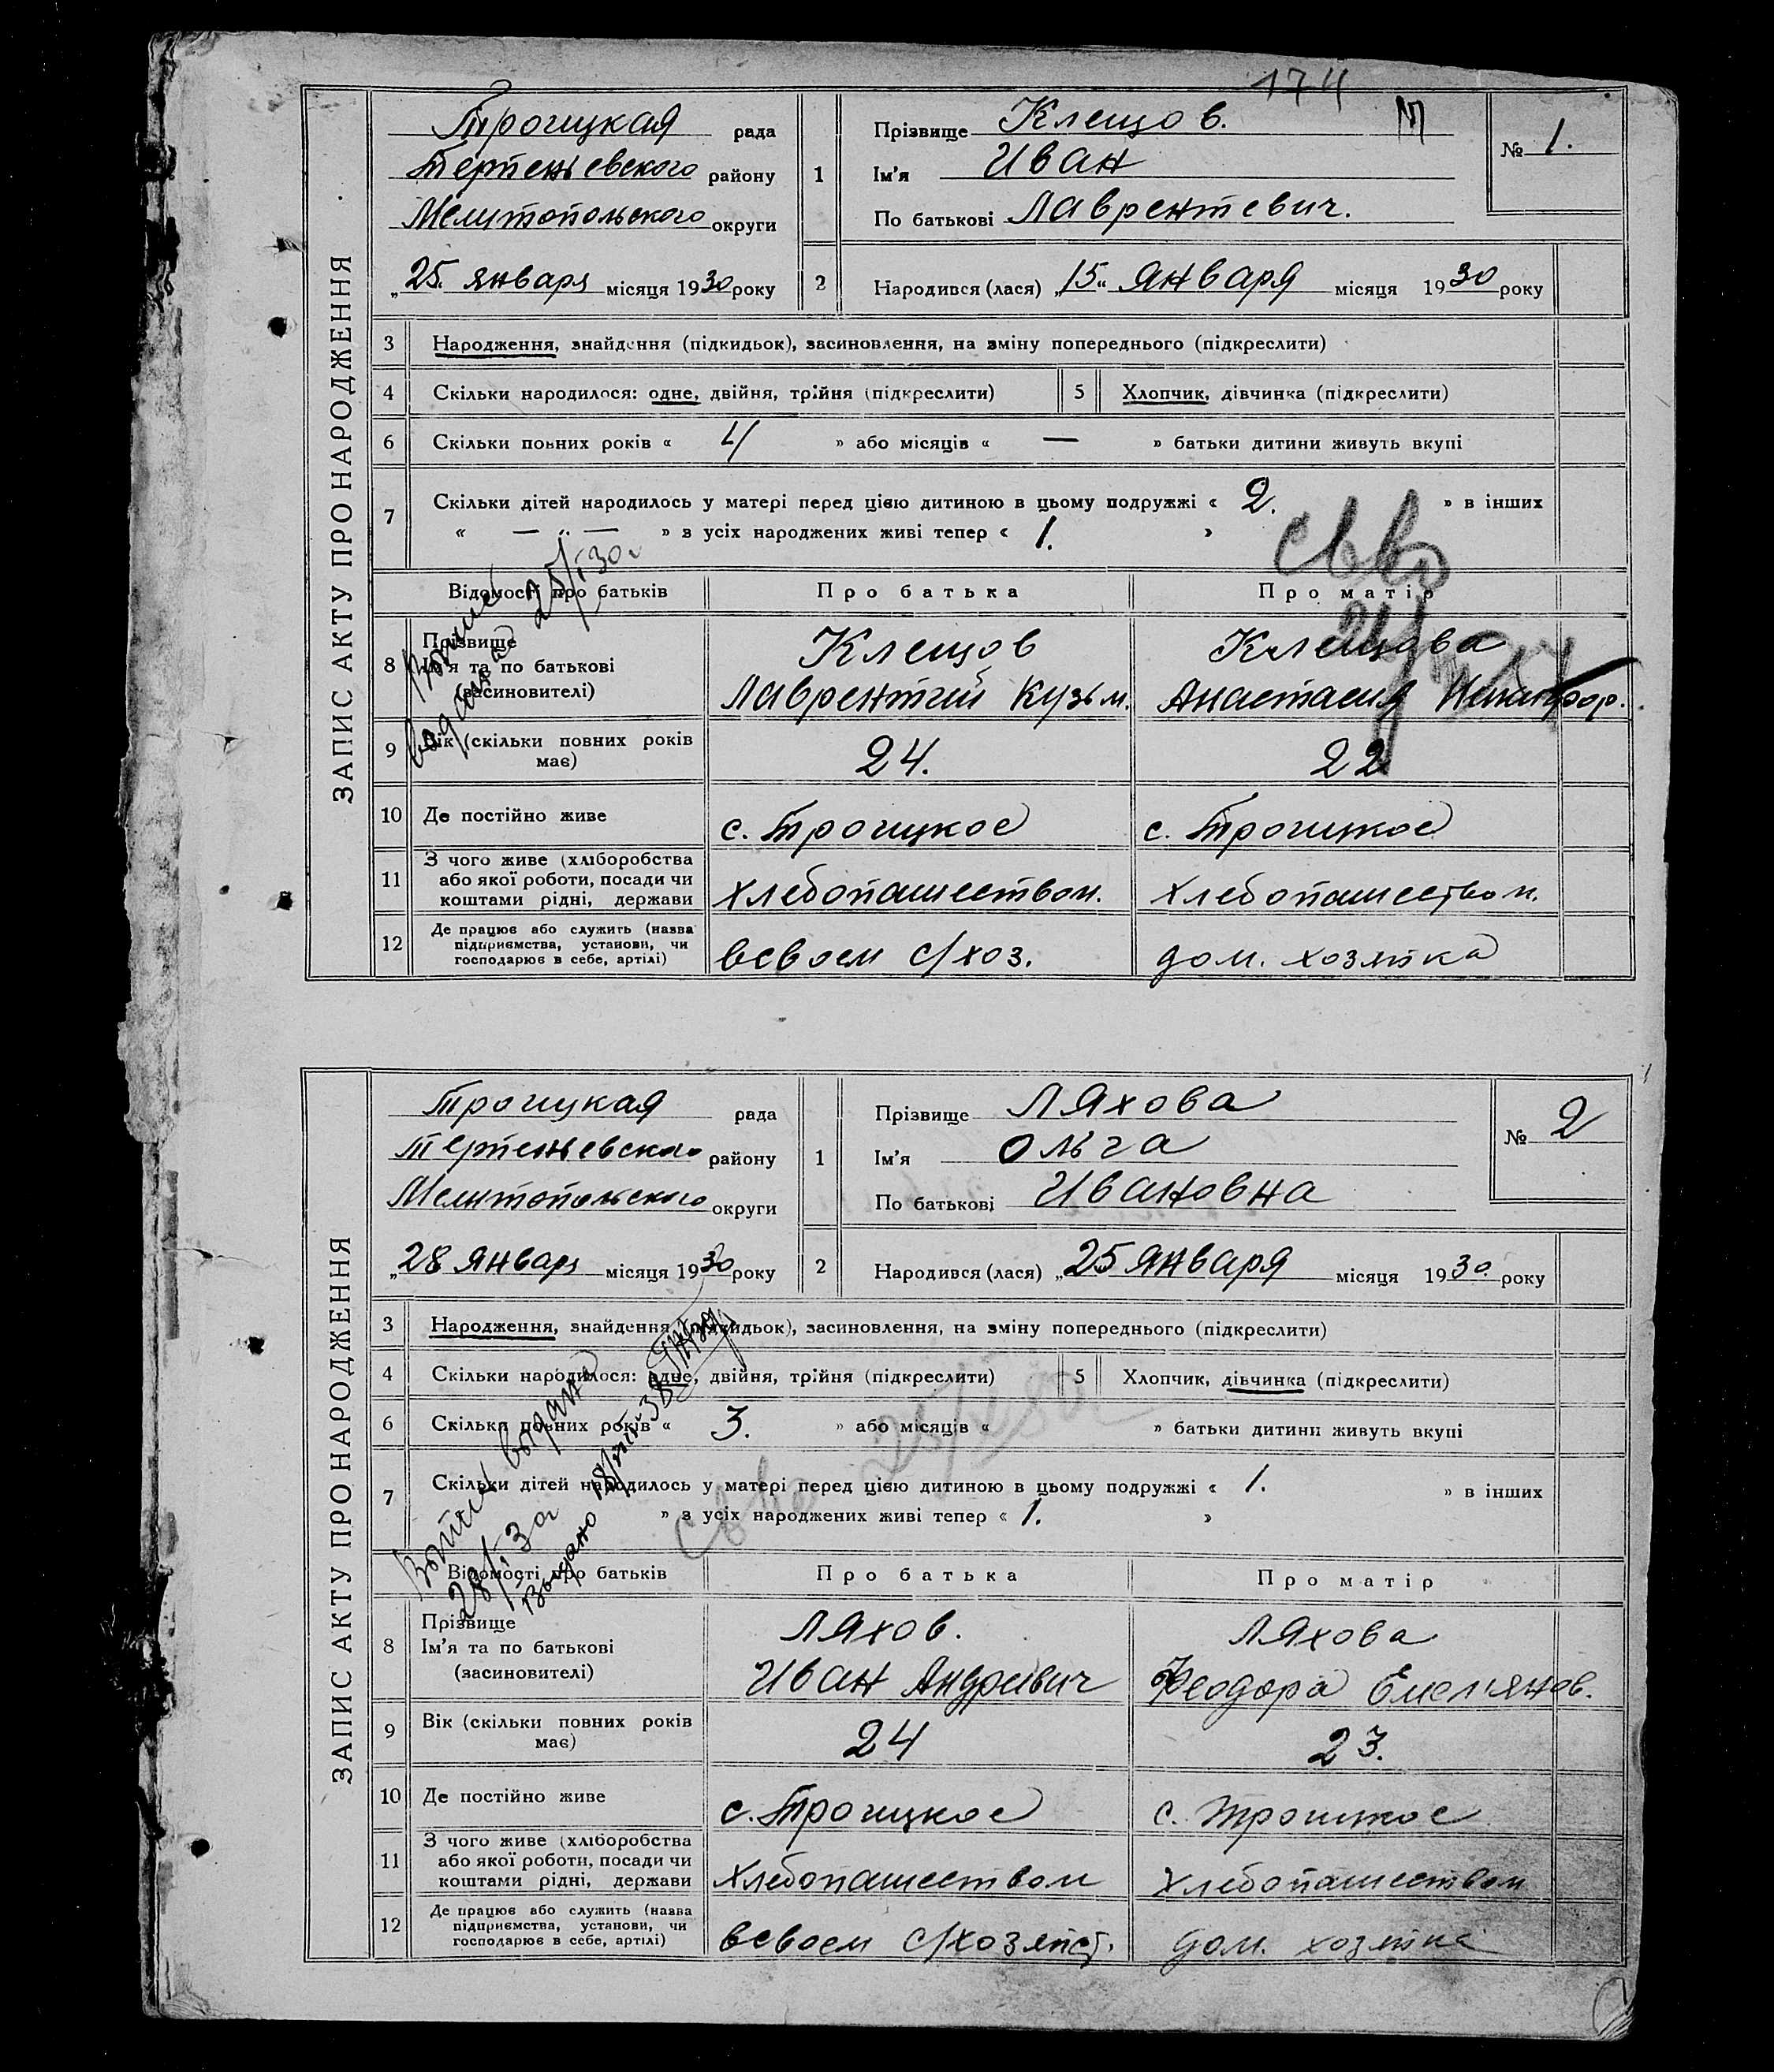 174
ЗАПИС АКТУ ПРО НАРОДЖЕННЯ
Троицкая рада
Терпеньевского району
Мелитопольского округи
„25. января місяця 1930 року
1
Прізвище Клещов. М
Ім'я Иван
По батькові Лаврентевич.
№ 1.
2 Народився (лася) „15“ января місяця 1930 року
3 Народження, знайдення (підкидьок), засиновлення, на зміну попереднього (підкреслити)
4 Скільки народилося: одне, двійня, трійня (підкреслити) 5 Хлопчик, дівчинка (підкреслити)
6 Скільки повних років « 4 » або місяців « — » батьки дитини живуть вкупі
7 Скільки дітей народилось у матері перед цією дитиною в цьому подружжі « 2. » в інших
« — „ — » з усіх народжених живі тепер « 1. »
Відомості про батьків Про батька Про матір
8 Прізвище Клещов Клещова
Ім'я та по батькові Лаврентий Кузьм. Анастасия Никифор.
(засиновителі)
9 Вік (скільки повних років має) 24. 22
10 Де постійно живе с. Троицкое с. Троицкое
11 З чого живе (хліборобства
або якої роботи, посади чи
коштами рідні, держави хлебопашеством. хлебопашеством.
12 Де працює або служить (назва
підприємства, установи, чи
господарює в себе, артілі) всвоем с/хоз. дом. хозяйка
выдана 25/I 30г
ЗАПИС АКТУ ПРО НАРОДЖЕННЯ
Троицкая рада
Терпеньевского району
Мелитопольского округи
„28 январ місяця 1930 року
1
Прізвище Ляхова
Ім'я Ольга
По батькові Ивановна
№ 2
2 Народився (лася) „25 января місяця 1930. року
3 Народження, знайдення (підкидьок), засиновлення, на зміну попереднього (підкреслити)
4 Скільки народилося: одне, двійня, трійня (підкреслити) 5 Хлопчик, дівчинка (підкреслити)
6 Скільки повних років « 3. » або місяців « » батьки дитини живуть вкупі
7 Скільки дітей народилось у матері перед цією дитиною в цьому подружжі « 1. » в інших
» з усіх народжених живі тепер « 1. »
Відомості про батьків Про батька Про матір
8 Прізвище Ляхов. Ляхова
Ім'я та по батькові Иван Андреевич Феодора Емельянов.
(засиновителі)
9 Вік (скільки повних років має) 24 23.
10 Де постійно живе с. Троицкое с. Троицкое
11 З чого живе (хліборобства
або якої роботи, посади чи
коштами рідні, держави хлебопашеством хлебопашеством
12 Де працює або служить (назва
підприємства, установи, чи
господарює в себе, артілі) всвоем с/хозяйст. дом. хозяйка
выдана
28/I 30г
Выдано